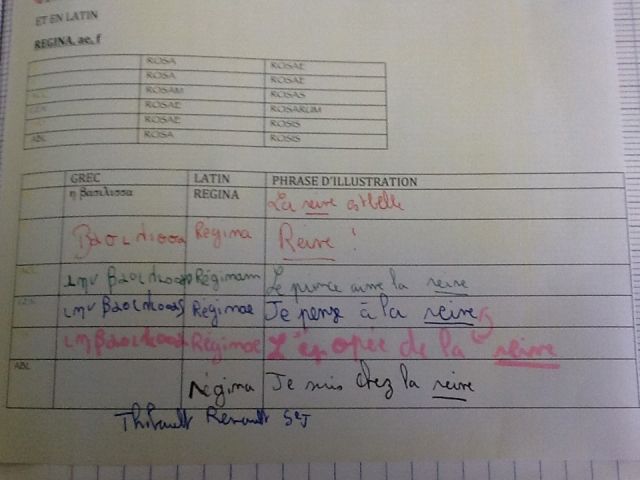 ET EN LATIN
REGINA, ae, f
ROSA ROSAE
ROSA ROSAE
ROSAM ROSAS
ROSAE ROSARUM
ROSAE ROSIS
ABL ROSA ROSIS
GREC LATIN PHRASE D'ILLUSTRATION
η βασιλισσα REGINA La reine est belle
Βασιλισσα Regina Reine !
ACC Régimam Le prince aime la reine
GEN Régimae Je pense à la reine
Régimae L'épopée de la reine
ABL régima Je suis chez la reine
Thibault Renault